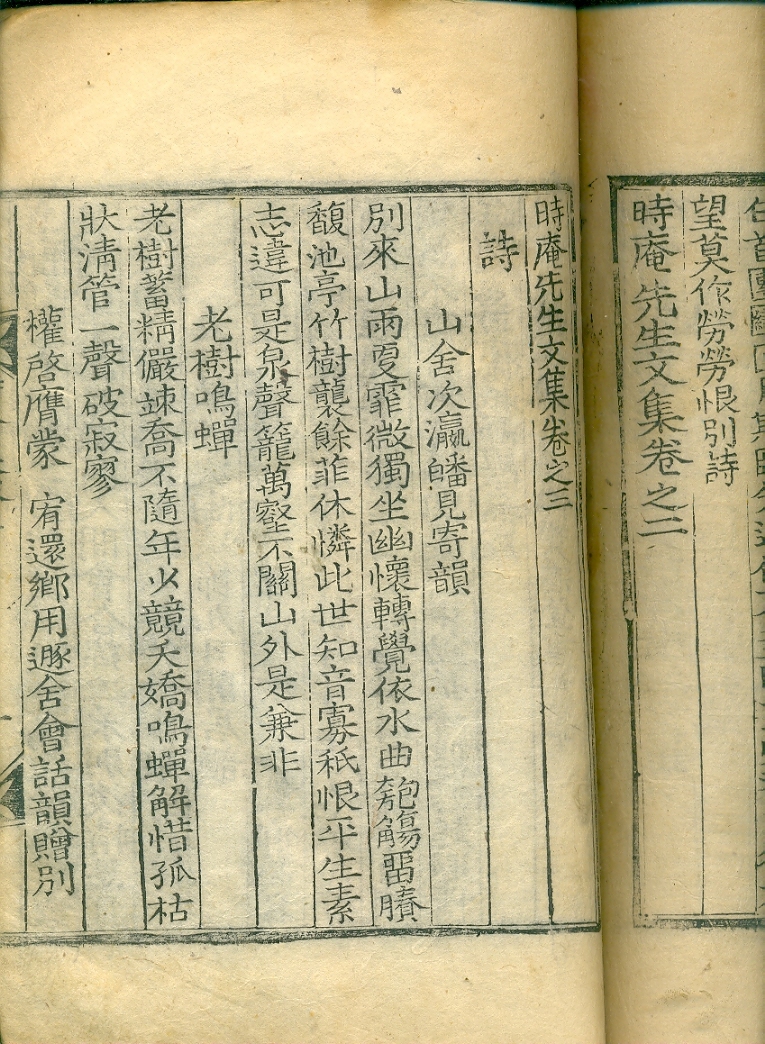 望莫作勞勞恨別詩
時庵先生文集卷之二
時庵先生文集卷之三
詩
山舍次瀛皤見寄韻
別來山雨夏霏微獨坐幽懷轉覺依水曲匏觴留賸
馥池亭竹樹襲餘菲休憐此世知音寡秪恨平生素
志違可是泉聲籠萬壑不關山外是兼非
老樹鳴蟬
老樹蓄精儼竦喬不隨年少競夭嬌鳴蟬解惜孤枯
狀清管一聲破寂寥
權啓膺蒙 宥還鄉用遯舍會話韻贈別